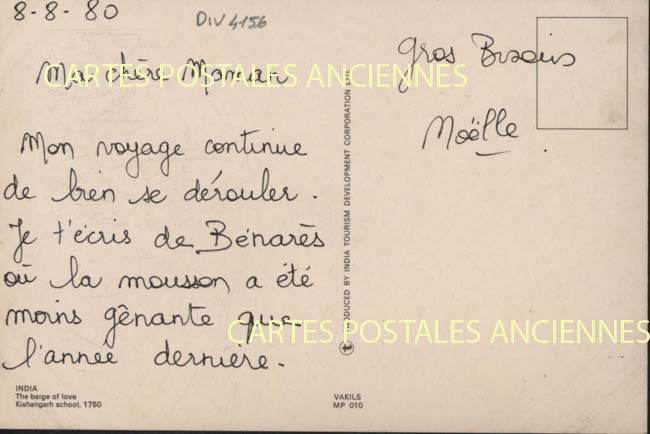 8-8-80
DIV 4156
Ma chère Maman
CARTES POSTALES ANCIENNES
Mon voyage continue
de bien se dérouler.
Je t'écris de Bénarès
où la mousson a été
moins gênante que
l'année dernière.
CARTES POSTALES ANCIENNES
Gros Bisous
Noëlle.
PRODUCED BY INDIA TOURISM DEVELOPMENT CORPORATION LTD.
INDIA
The barge of love
Kishangarh school, 1750
VAKILS
MP 010